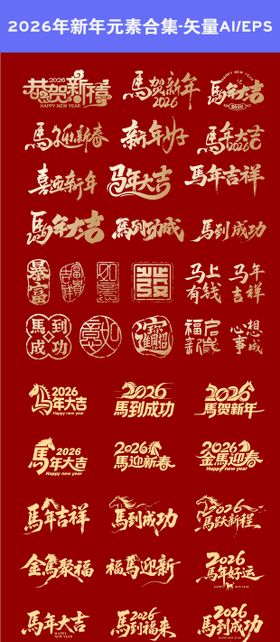 2026年新年元素合集-矢量AI/EPS
2026
恭贺新禧
HAPPY NEW YEAR
馬賀新年
2026
HAPPY NEW YEAR
馬年大吉
2026
馬年迎新春
新年好
馬年大吉
2026
喜迎新年
马年大吉
馬年吉祥
馬年大吉
馬到功成
馬到成功
暴富
马上有钱
马年吉祥
馬到成功
招财进宝
福启新岁
心想事成
2026
馬年大吉
Happy new year
2026
馬到成功
2026
馬賀新年
2026
馬年大吉
Happy new year
2026
馬迎新春
2026
金馬迎春
Happy new year
馬年吉祥
馬到成功
馬跃新程
金馬聚福
福馬迎新
2026
馬年好运
HAPPY NEW YEAR
馬年大吉
HAPPY NEW YEAR
2026
馬到福来
2026
馬到成功